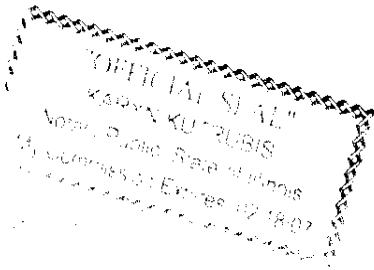 "OFFICIAL SEAL"
KARYN KUTRUBIS
Notary Public, State of Illinois
My Commission Expires 02-18-07